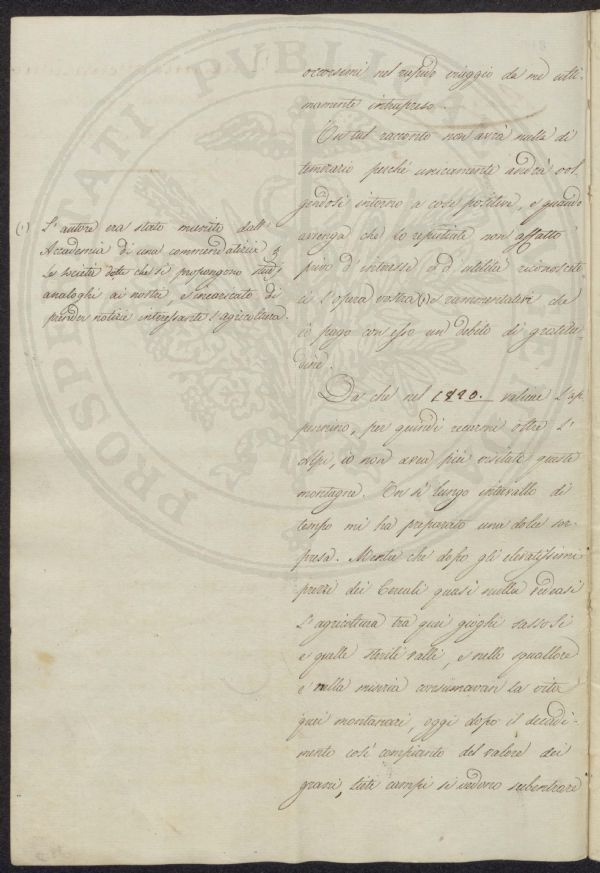 occorsioni nel rapido viaggio da me ulti-
mamente intrapreso.
Un tal racconto non avrà nulla di
temerario perchè unicamente andrà vol-
gendosi intorno a cose positive, e quando
avvenga che lo reputiate non affatto
privo d'interesse e d'utilità riconoscete
ci l'opera vostra (1) e rammentatevi che
io pago con esso un debito di gratitu-
dine.
(1) L'autore era stato munito dall'
Accademia di una commendatizia p.
le società dotte che si propongono studj
analoghi ai nostri, e incaricato di
prender notizie interessanti l'agricoltura.
Da che nel 1820. valicai l'ap-
pennino, per quindi recarmi oltre l'
Alpi, io non avea più visitate queste
montagne. Un sì lungo intervallo di
tempo mi ha preparato una dolce sor-
presa. Mentre che dopo gli elevatissimi
prezzi dei Cereali quasi nulla vedeasi
l'agricoltura tra quei gioghi sassosi
e quelle sterili valli, e nello squallore
e nella miseria consumavan la vita
quei montanari, oggi dopo il decadi-
mento così compianto del valore dei
grani, lieti campi si vedono subentrare
PROSPERITATI PUBLICAE